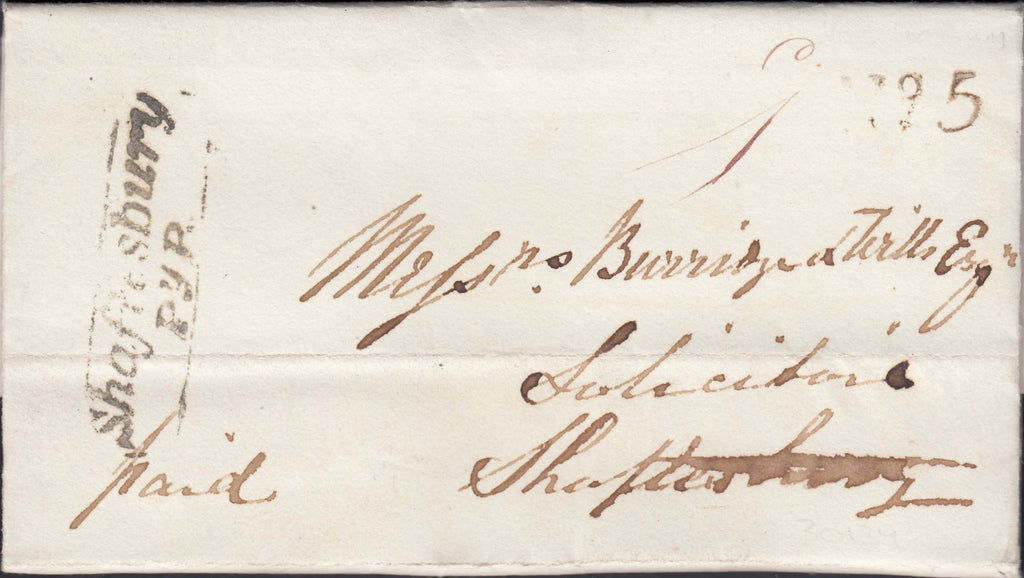 Shaftesbury
PyP.
1
5
Messrs. Burridge & Wills Esqr
Solicitors
Shaftesbury
paid